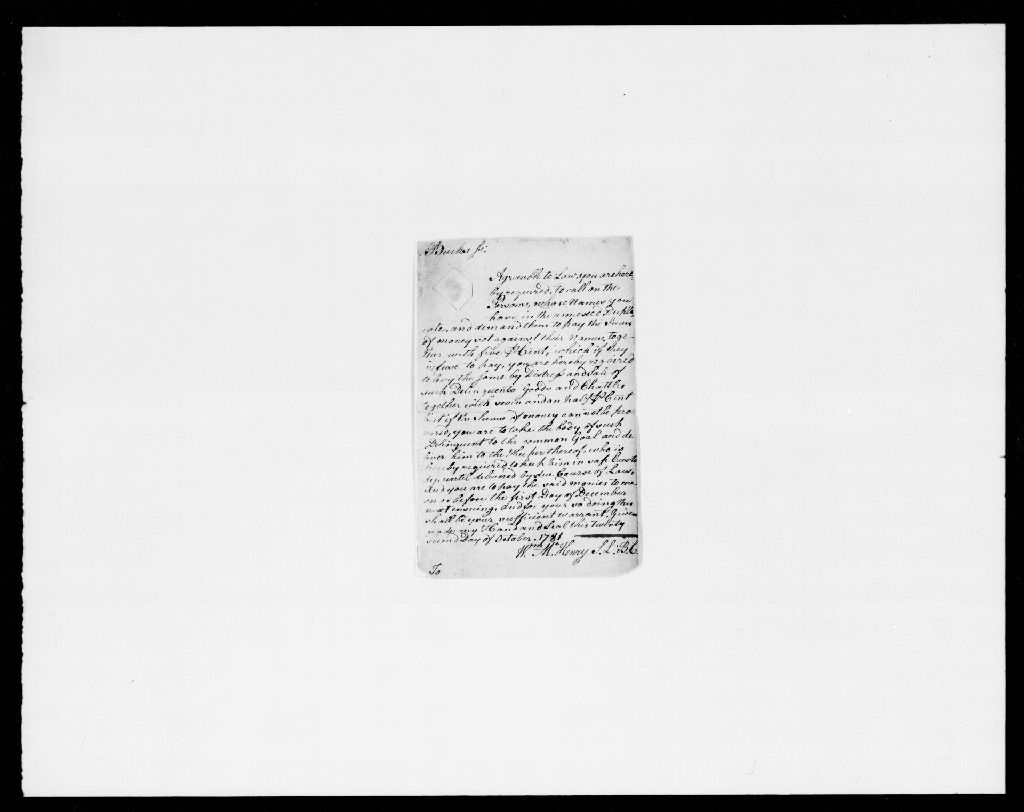 Bucks ss:
Agreeable to Law, you are here
by required, to call on the
Persons, whose Names you
have in the annexed Dupli
cate, and demand them to pay the Sums
of money set against their Names, toge
ther with five ⅌ Cent, which if they
refuse to pay, you are hereby required
to levy the same by Distress and Sale of
such Delinquents Goods and Chattles
together with seven and an half ⅌ Cent
but if the Sums of money cannot be pro
cured, you are to take the body of such
Delinquent to the common Goal and de
liver him to the Keeper thereof, who is
hereby required to keep him in safe Custo
dy until delivered by due Course of Law.
And you are to pay the said monies to me
on or before the first Day of December
next ensuing. And for your so doing this
shall be your sufficient warrant. Given
under my Hand and Seal this twenty
second Day of October. 1781
Wm. Mc. Henry S. L. B. C.
To